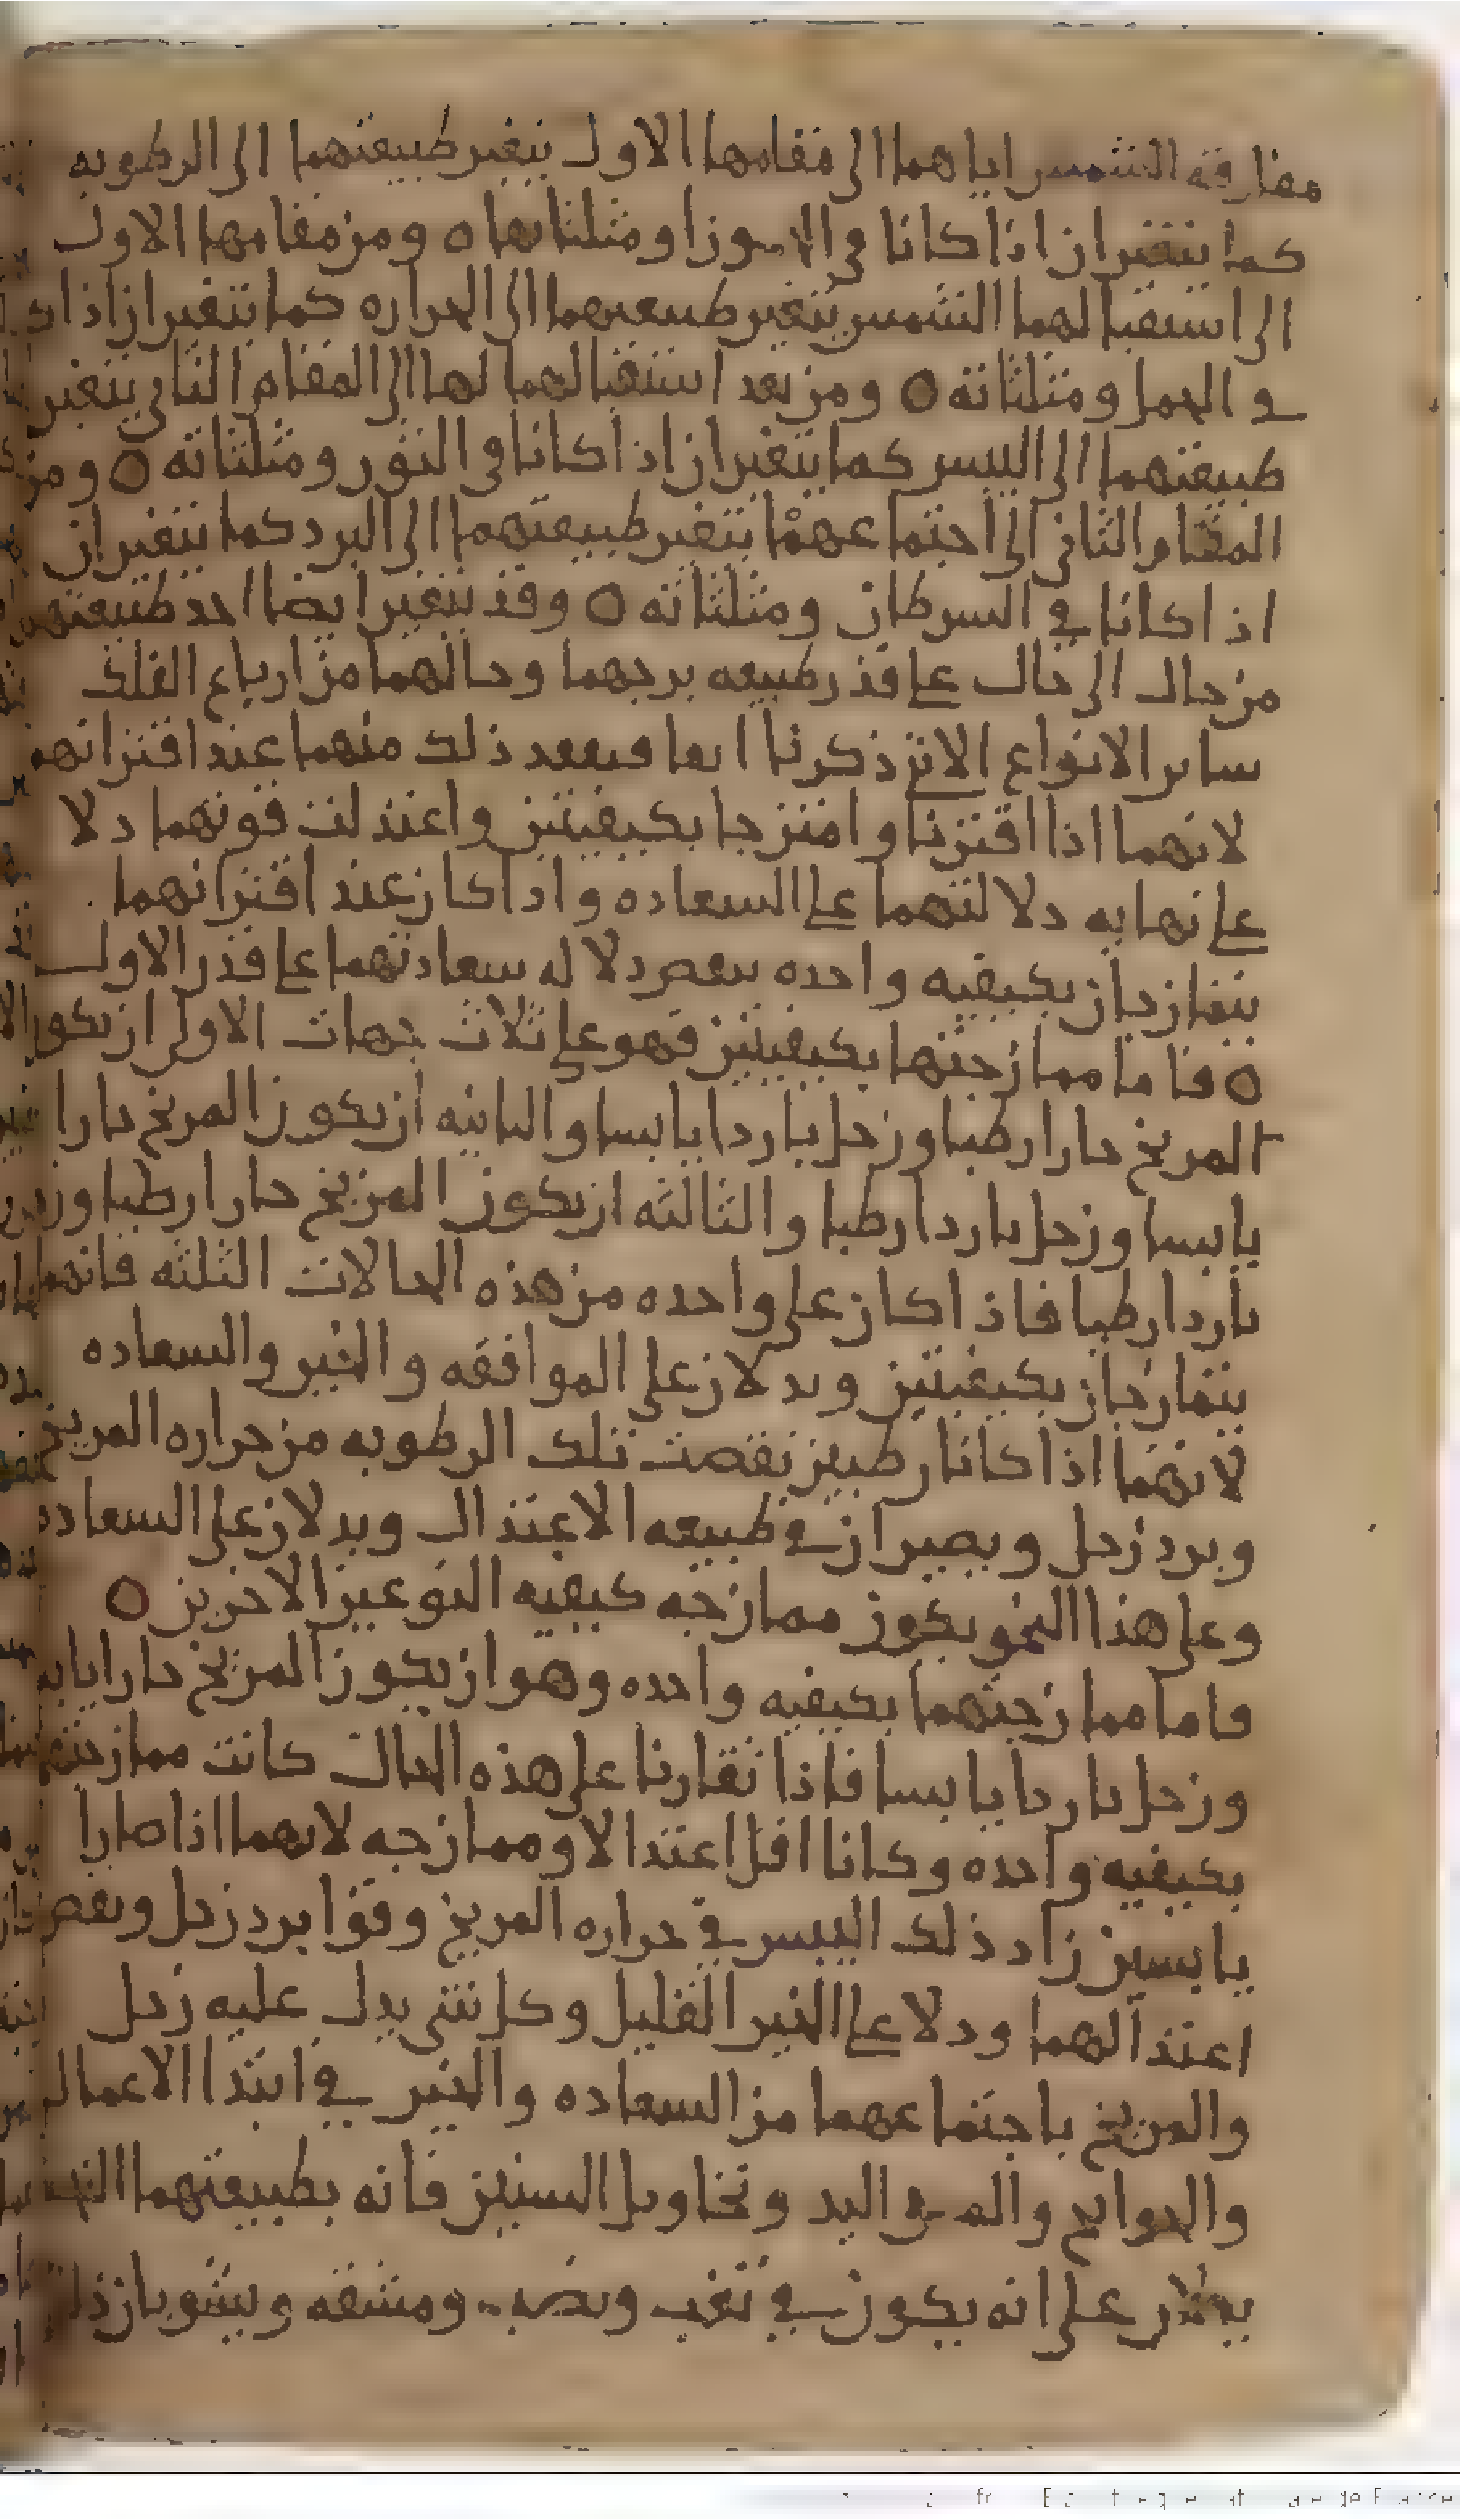 مفارقه الشمس اياهما الى مقامها الاول يتغير طبيعتهما الى الرطوبه
كما يتغيران اذا كانا في الجوزا ومثلثاتها ٥ ومن مقامها الاول
الى استقبالهما الشمس يتغير طبيعتهما الى الحراره كما يتغيران اذا كانا
في الحمل ومثلثاته ٥ ومن بعد استقبالهما لها الى المقام الثاني يتغير
طبيعتهما الى اليبس كما يتغيران اذا كانا في الثور ومثلثاته ٥ ومن
المقام الثاني الى اجتماعهما يتغير طبيعتهما الى البرد كما يتغيران
اذا كانا في السرطان ومثلثاته ٥ وقد يتغير ايضا احد طبيعتهما
من حال الى حال على قدر طبيعه برجهما وحالهما من ارباع الفلك
ساير الانواع الاتي ذكرنا انفا فيفعد ذلك منهما عند اقترانهما
لانهما اذا اقترنا وامتزجا بكيفيتين واعتدلت قوتهما دلا
على نهايه دلالتهما على السعاده واذا كان عند اقترانهما
يتمازجان بكيفيه واحده ينقص دلاله سعادتهما على قدر الاول
٥ فاما ممازجتها بكيفيتين فهو على ثلاث جهات الاولى ان يكون
المريخ حارا رطبا وزحل باردا يابسا والثانيه ان يكون المريخ حارا
يابسا وزحل باردا رطبا والثالثه ان يكون المريخ حارا رطبا وزحل
باردا رطبا فاذا كان على واحده من هذه الحالات الثلثه فانهما
يتمازجان بكيفيتين ويدلان على الموافقه والخير والسعاده
لانهما اذا كانا رطبين نقصت تلك الرطوبه من حراره المريخ
وبرد زحل ويصيران في طبيعه الاعتدال ويدلان على السعاده
وعلى هذا النحو يكون ممازجه كيفيه النوعين الاخرين ٥
فاما ممازجتهما بكيفيه واحده وهو ان يكون المريخ حارا يابسا
وزحل باردا يابسا فاذا تقارنا على هذه الحال كانت ممازجتهما
بكيفيه واحده وكانا اقل اعتدالا وممازجه لانهما اذا صارا
يابسين زاد ذلك اليبس في حراره المريخ وقوا برد زحل ونقص
اعتدالهما ودلا على الخير القليل وكل شي يدل عليه زحل
والمريخ باجتماعهما من السعاده والخير في ابتدا الاعمال
والحوايج والمواليد وتحاويل السنين فانه بطبيعتهما
يدلان على انه يكون في تعب ونصب ومشقه ويشوبان